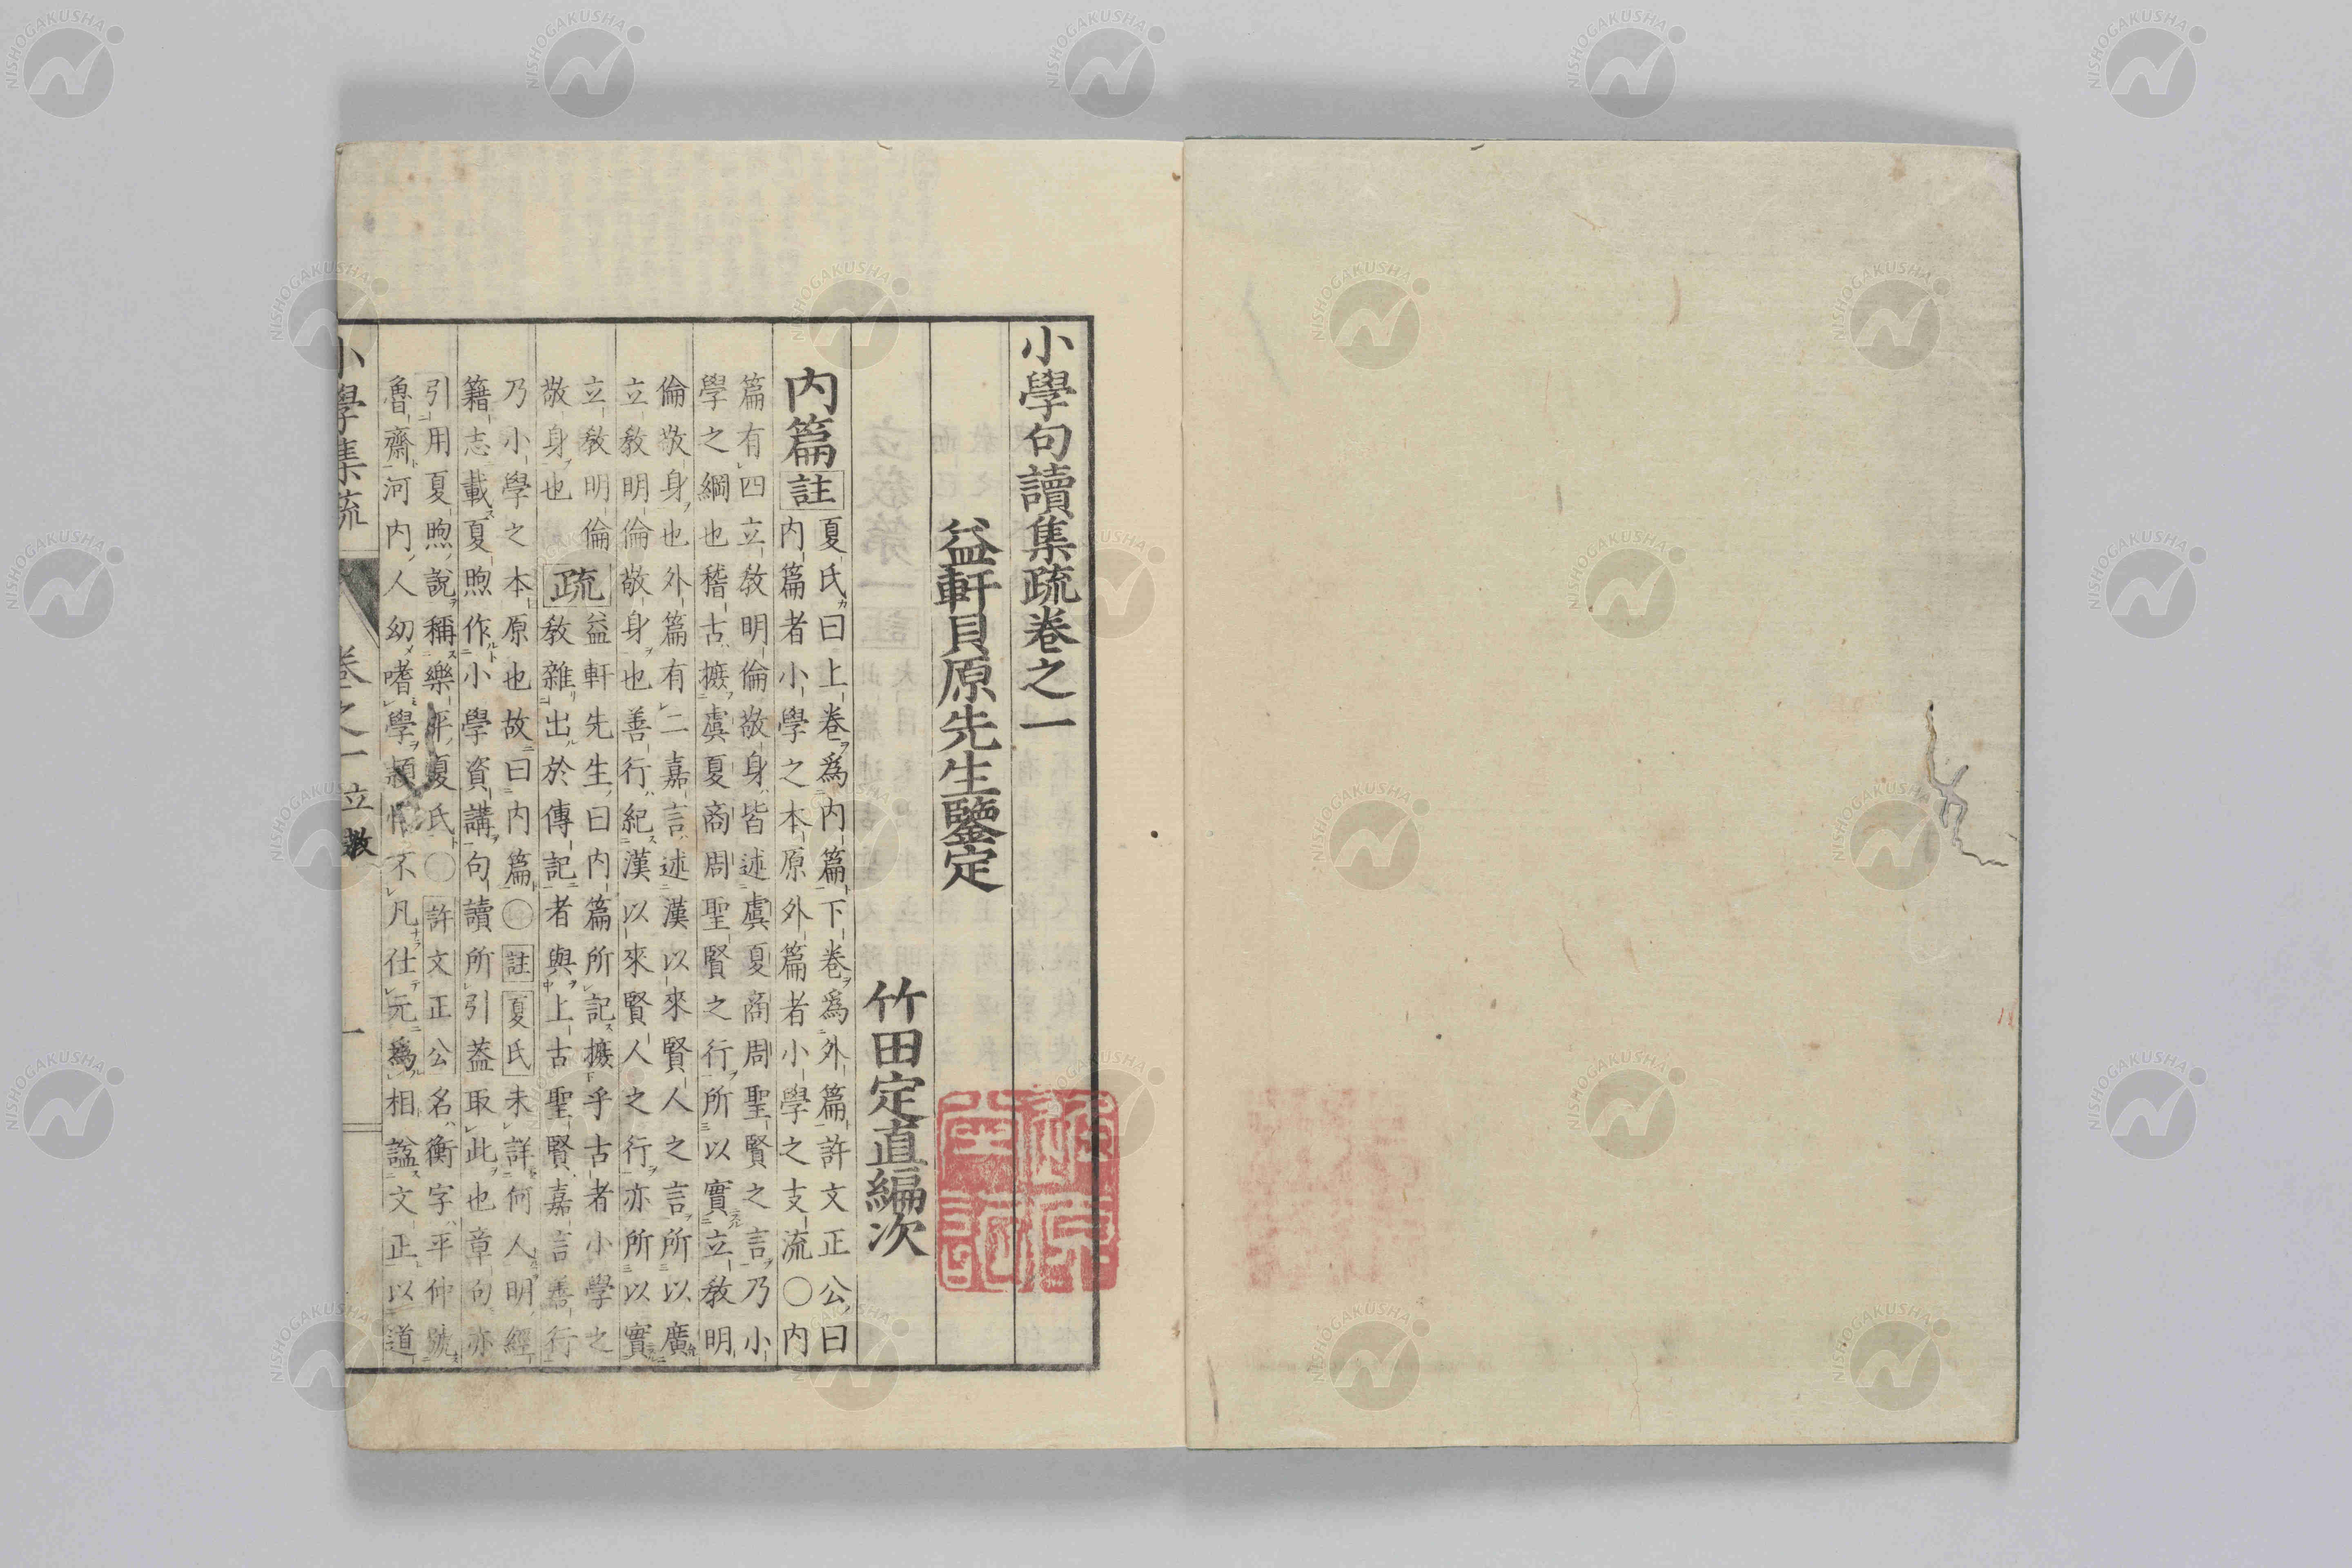 小學句讀集疏卷之一
益軒貝原先生鑒定
竹田定直編次
内篇註
夏氏曰上卷爲内篇下卷爲外篇許文正公曰
内篇者小學之本原外篇者小學之支流〇内
篇有四立敎明倫敬身皆述虞夏商周聖賢之言乃小
學之綱也稽古摭虞夏商周聖賢之行所以實立敎明
倫敬身也外篇有二嘉言述漢以來賢人之言所以廣
立敎明倫敬身也善行紀漢以來賢人之行亦所以實
立敎明倫
敬身也
疏
益軒先生曰内篇所記摭乎古者小學之
敎雜出於傳記者與上古聖賢嘉言善行
乃小學之本原也故曰内篇〇註夏氏未詳何人明經
籍志載夏煦作小學資講句讀所引葢取此也章句亦
引用夏煦說稱樂平夏氏〇許文正公名衡字平仲號
魯齋河内人幼嗜學穎悟不凡仕元爲相諡文正以道
小學集疏 卷之一 立敎 一
NISHOGAKUSHA